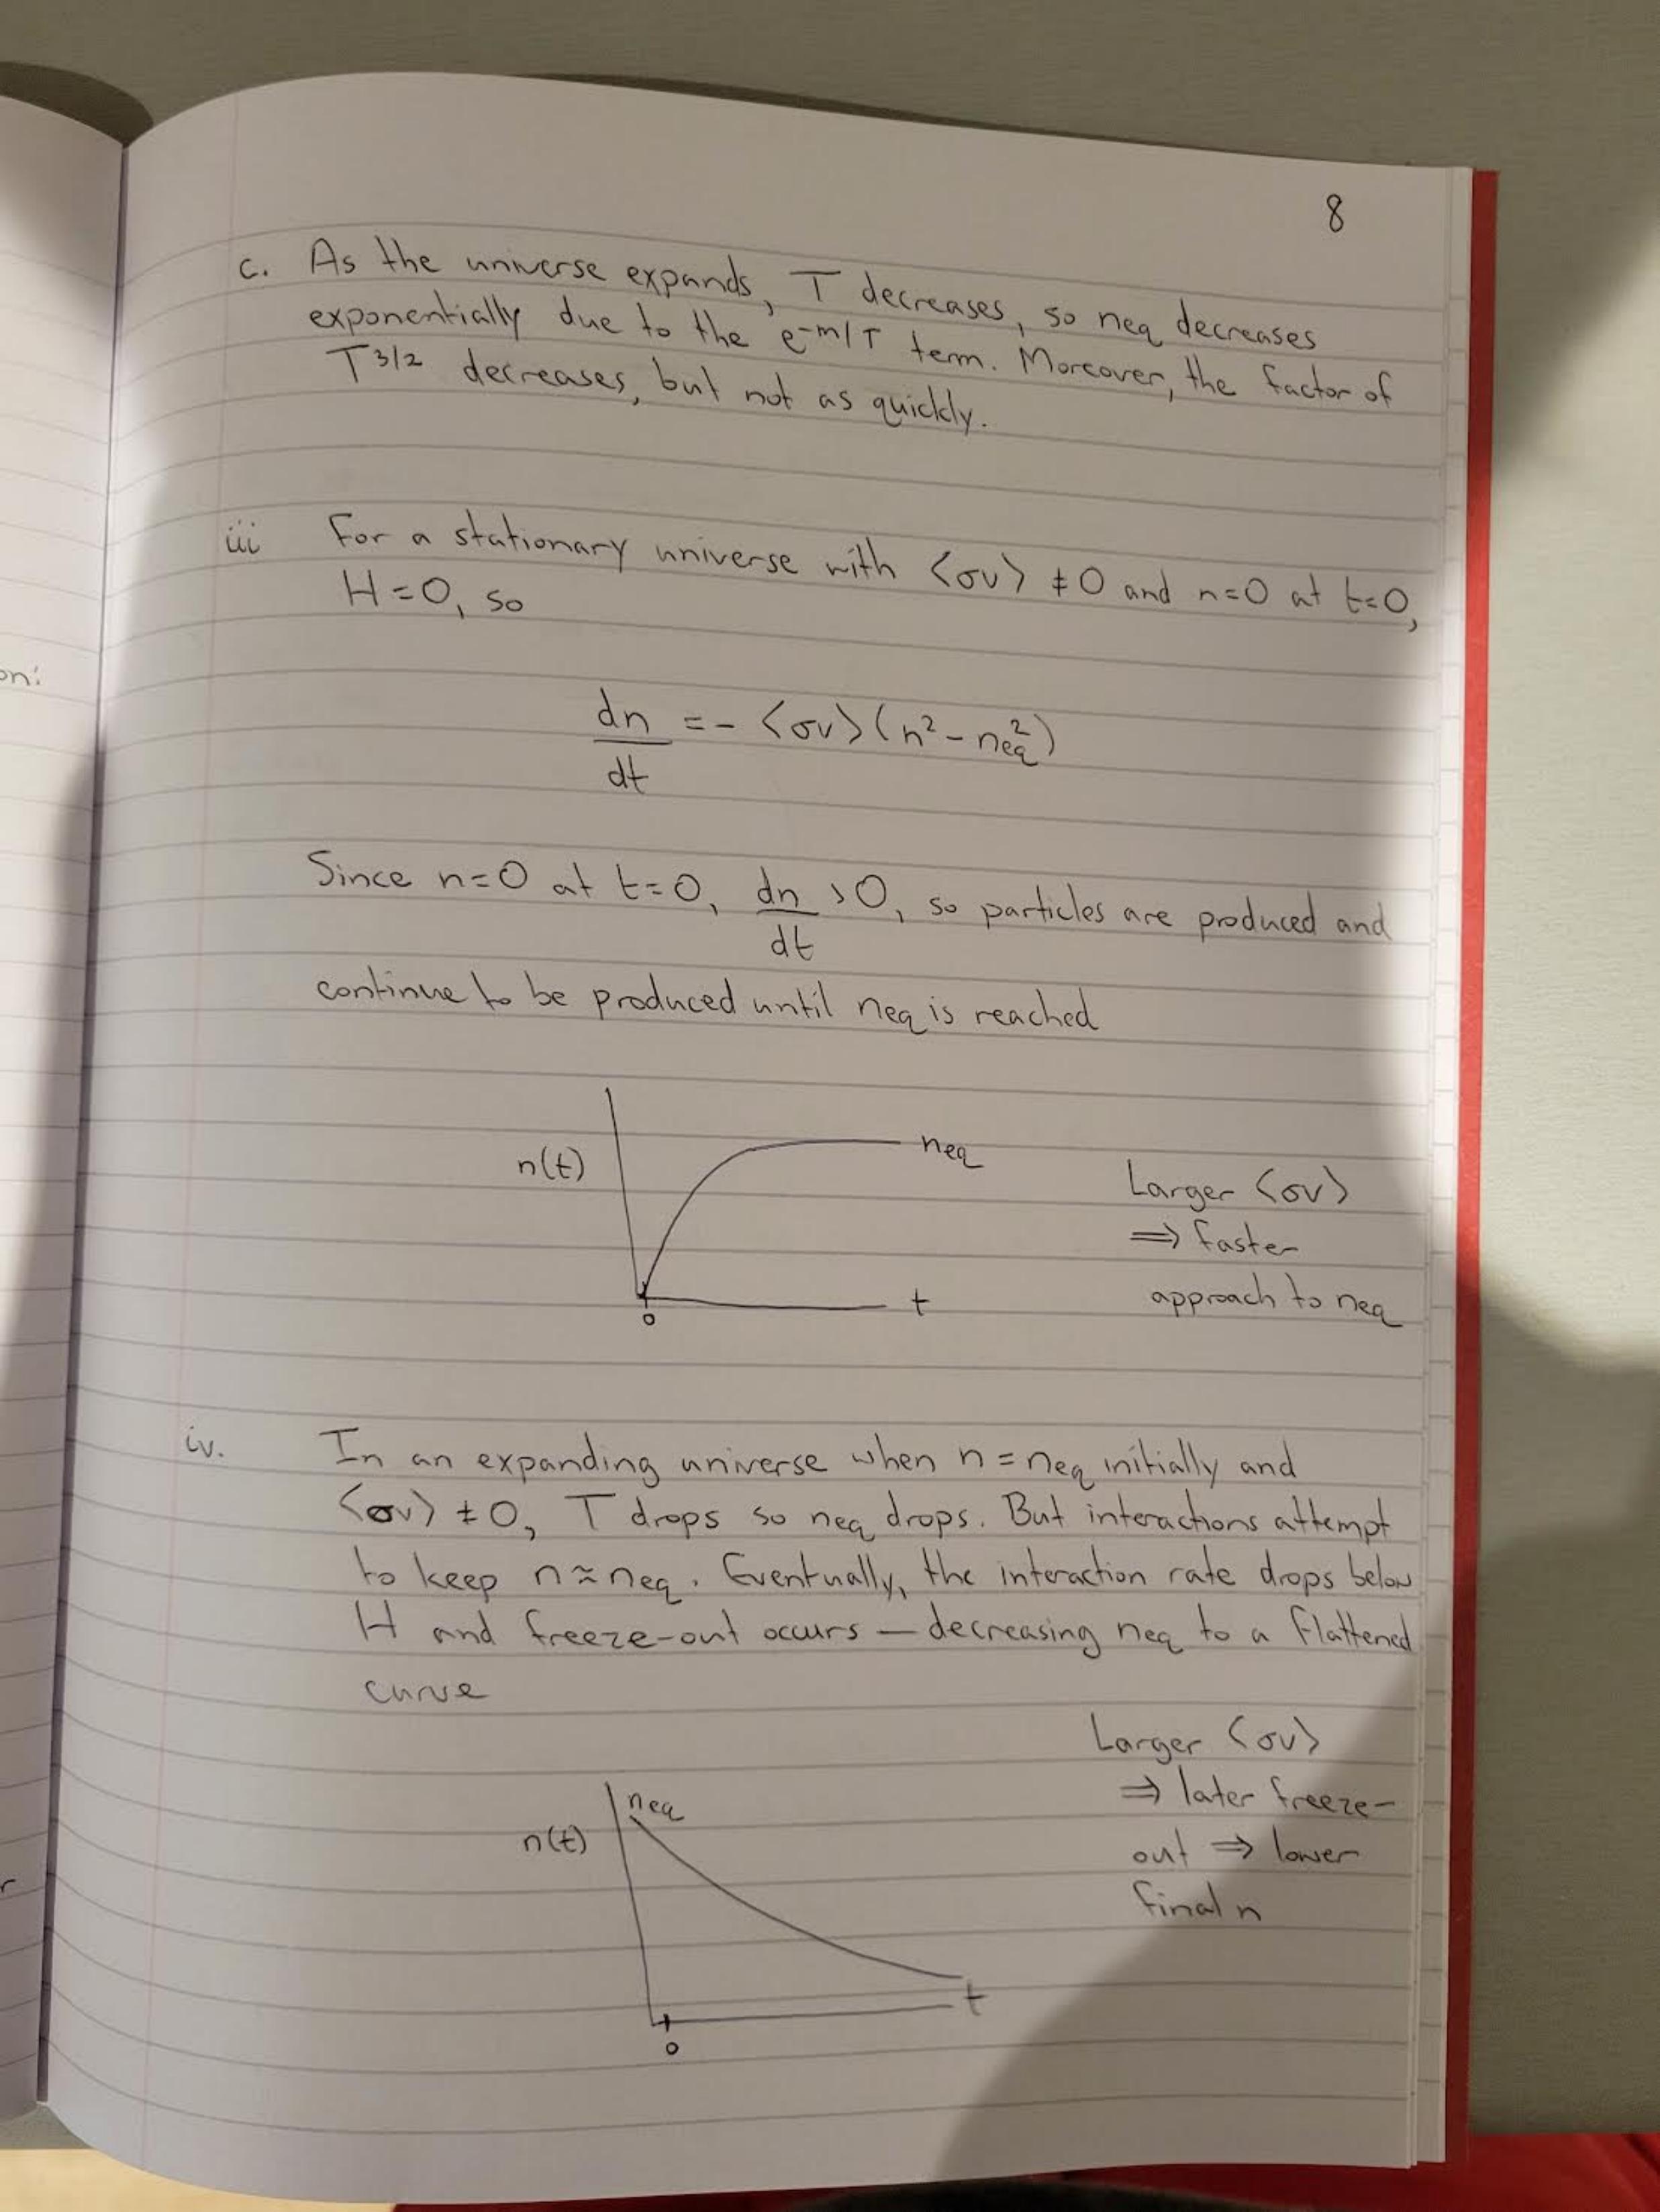 8
c. As the universe expands, T decreases, so neq decreases
exponentially due to the e^-m/T term. Moreover, the factor of
T^3/2 decreases, but not as quickly.
iii For a stationary universe with <σv> ≠ 0 and n=0 at t=0,
H=0, so
on:
dn/dt = - <σv> (n² - neq²)
Since n=0 at t=0, dn/dt >0, so particles are produced and
continue to be produced until neq is reached
n(t)
neq
Larger <σv>
⇒ faster
approach to neq
t
0
iv. In an expanding universe when n = neq initially and
<σv> ≠ 0, T drops so neq drops. But interactions attempt
to keep n ≈ neq. Eventually, the interaction rate drops below
H and freeze-out occurs — decreasing neq to a flattened
curve
r
Larger <σv>
⇒ later freeze-
out ⇒ lower
final n
neq
n(t)
t
0